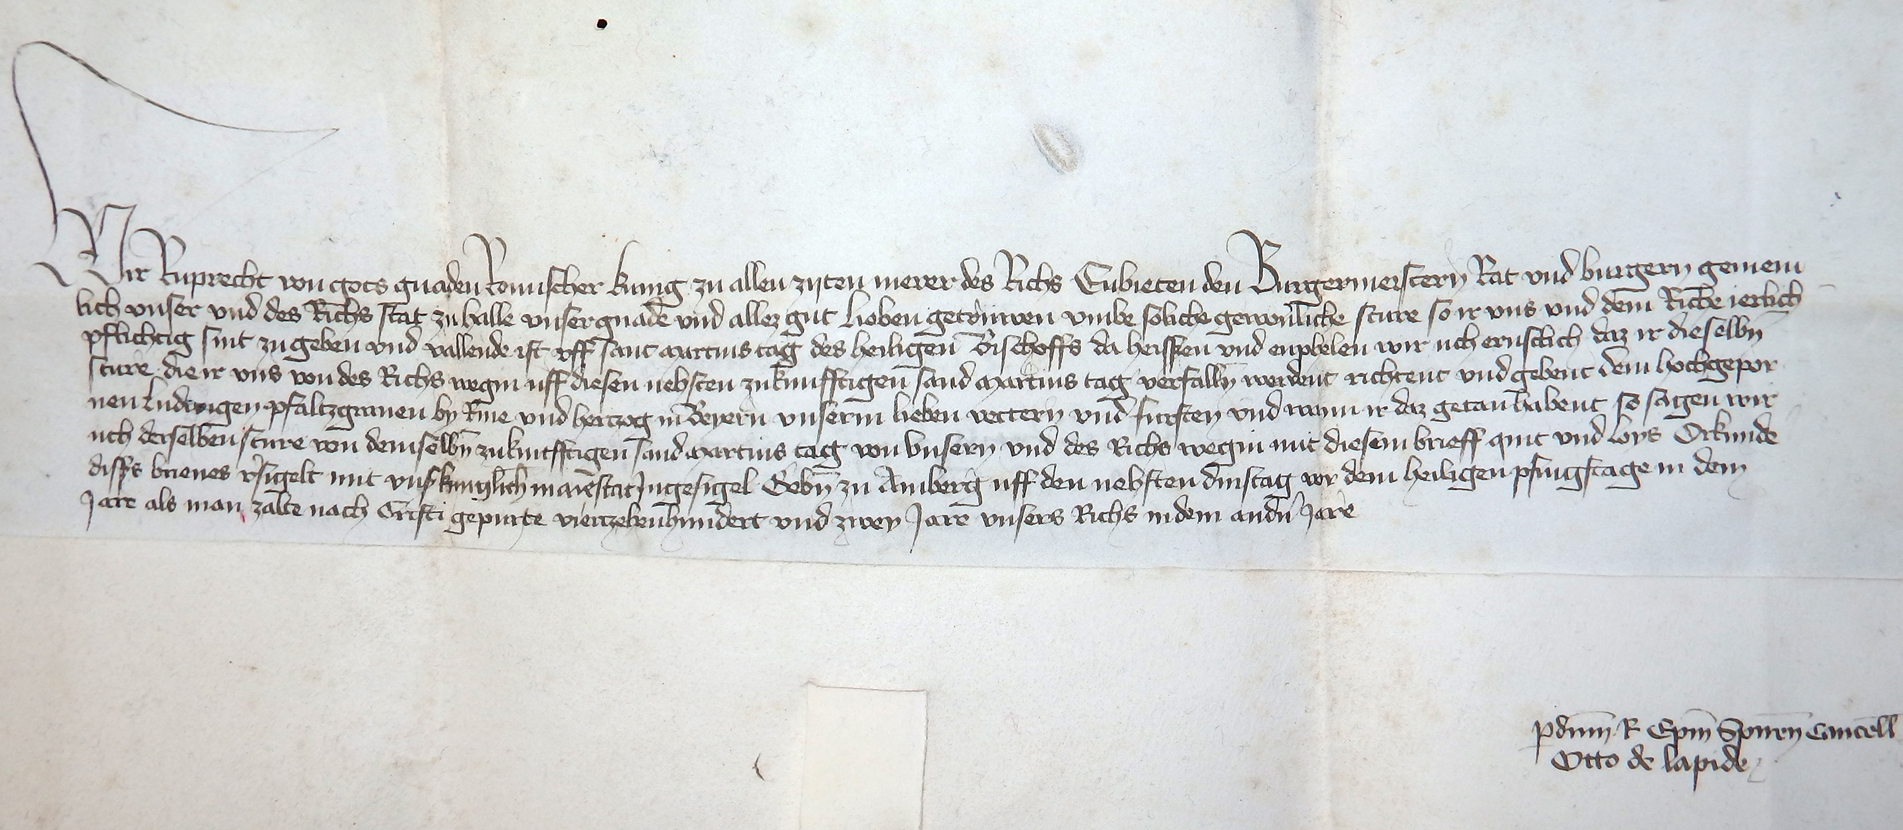 Wir Ruprecht von gots gnaden Romischer kunig zu allen zyten merer des Richs Enbieten den Burgermeistern Rat vnd burgern gemein
lich vnser vnd des Richs stat zu halle vnser gnade vnd allez gut Lieben getruwen vmbe soliche gewonliche sture so ir vns vnd dem Riche ierlich
pflichtig sint zu geben vnd vallende ist vff sant martins tag des heiligen Bischoffs da heissen vnd enphelen wir uch ernstlich daz ir dieselbn
sture die ir vns von des Richs wegin uff diesen nehsten zukunfftigen sand martins tag verfalln werdent richtent vnd gebent dem hochgepor
nen Ludwigen pfaltzgrauen by Rine vnd hertzog in Beyern vnserm lieben vettern vnd fursten vnd wann ir daz getan habent so sagen wir
uch derselben sture von demselbn zukunfftigen sand martins tag von vnsern vnd des Richs wegin mit diesem brieff quit vnd loys Orkunde
disss brieues v'sigelt mit vns' kuniglich maiestat Ingesigel Gebn zu Amberg uff den nehsten dinstag vor dem heiligen pfingstage in dem
Jare als man zalte nach Cristi gepurte viertzehenhundert vnd zwey Jare vnsers Richs in dem andn Jare
p dnm R Epm Spiren Cancell
Otto de lapide